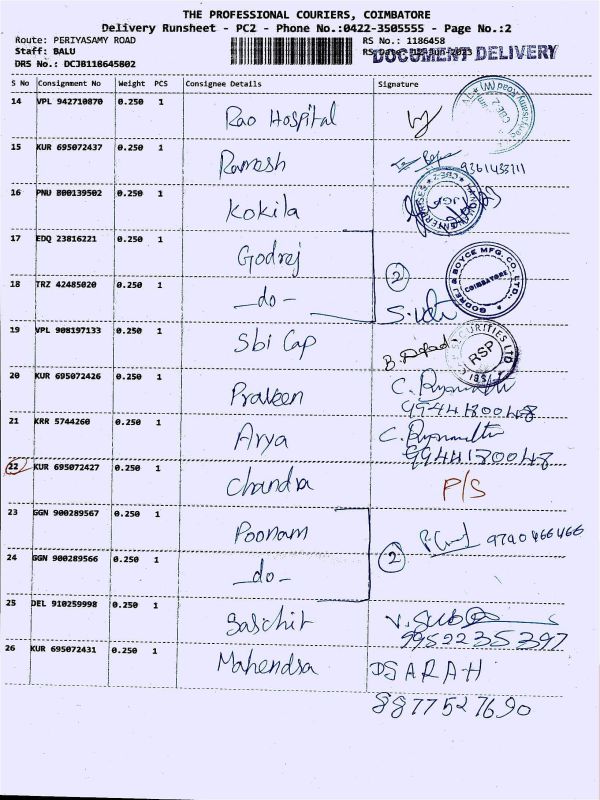 THE PROFESSIONAL COURIERS, COIMBATORE
Delivery Runsheet - PC2 - Phone No.:0422-3505555 - Page No.:2
Route: PERIYASAMY ROAD
RS No.: 1186458
Staff: BALU
DOCUMENT DELIVERY
DRS No.: DCJB118645802
S No Consignment No Weight PCS Consignee Details Signature
14 VPL 942710870 0.250 1 Rao Hospital
15 KUR 695072437 0.250 1 Ramesh
16 PNU 800139502 0.250 1 Kokila
17 EDQ 23816221 0.250 1 Godrej
GODREJ & BOYCE MFG. CO. LTD.
COIMBATORE
2
18 TRZ 42485020 0.250 1 -do-
19 VPL 908197133 0.250 1 Sbi Cap
SECURITIES LTD
RSP
20 KUR 695072426 0.250 1 Praveen
9944180048
21 KRR 5744260 0.250 1 Arya
9944180048
22 KUR 695072427 0.250 1 Chandra P/S
23 GGN 900289567 0.250 1 Poonam
9790466466
2
24 GGN 900289566 0.250 1 -do-
25 DEL 910259998 0.250 1 Saschit
9952235397
26 KUR 695072431 0.250 1 Mahendra DSARAH
8877527690